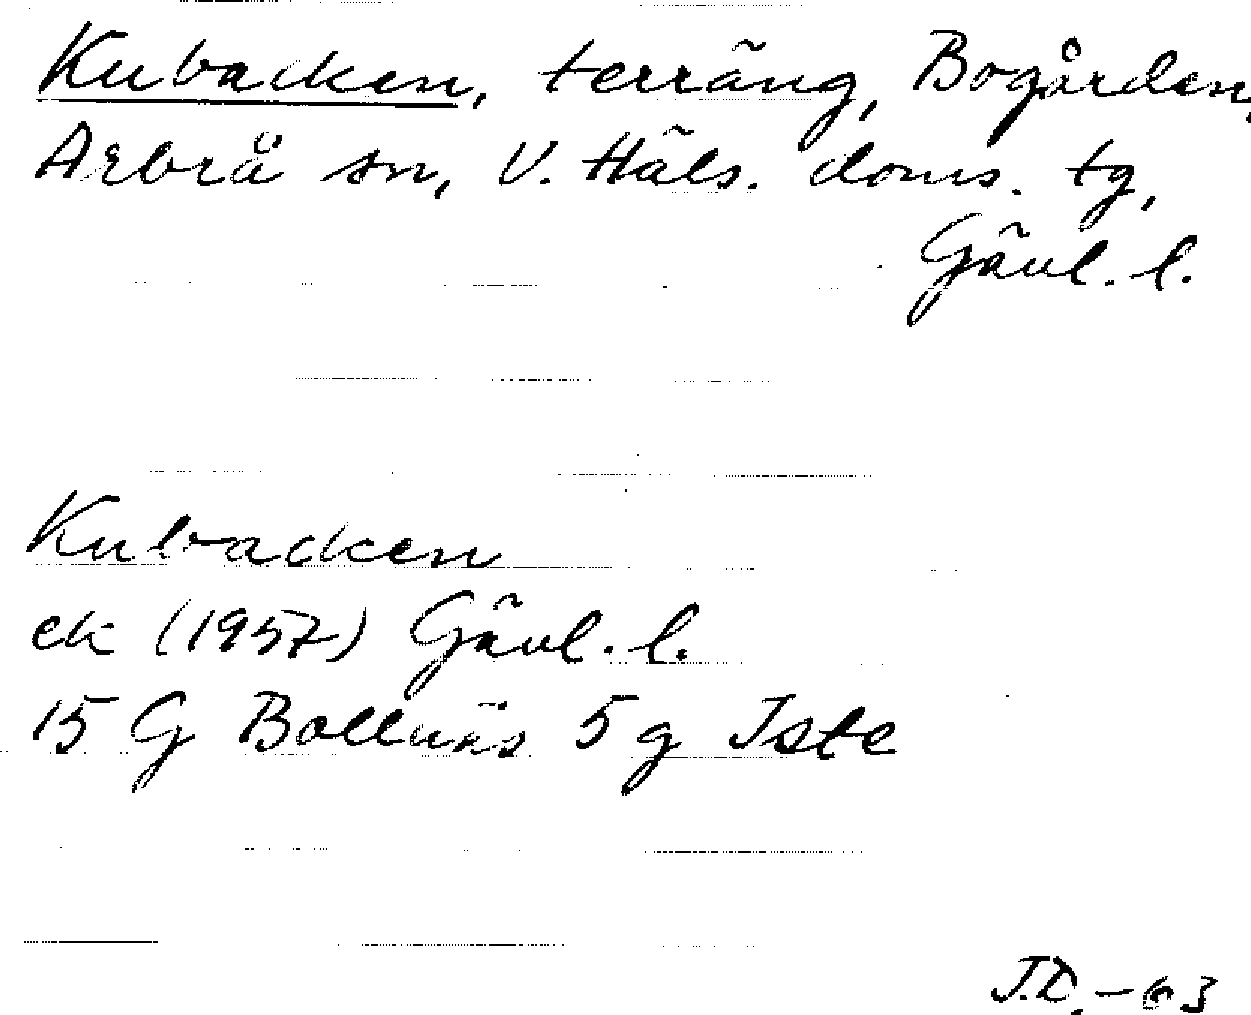 Kubacken, terräng, Bogården,
Arbrå sn, V. Häls. doms. tg,
Gävl. l.
Kubacken
ek (1957) Gävl. l.
15 G Bollnäs 5 g Iste
J.D. -63